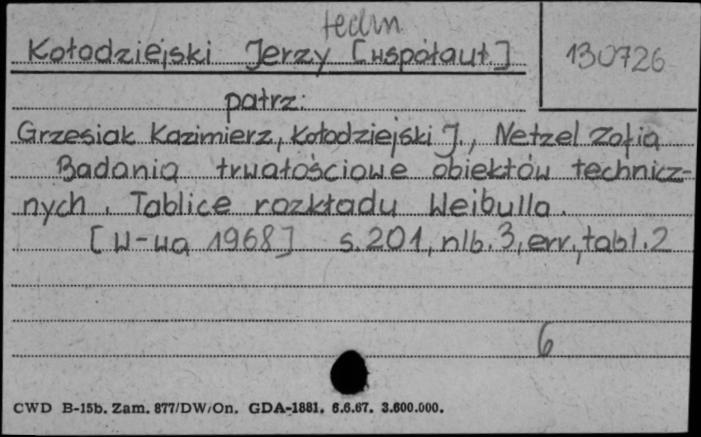 techn
Kołodziejski Jerzy [współaut.]
130726
patrz:
Grzesiak Kazimierz, Kołodziejski J., Netzel Zofia
Badania trwałościowe obiektów technicz-
nych. Tablice rozkładu Weibulla.
[W-wa 1968] s. 201, nlb. 3, err., tabl. 2
6
CWD B-15b. Zam. 877/DW/On. GDA-1881. 6.6.67. 3.600.000.